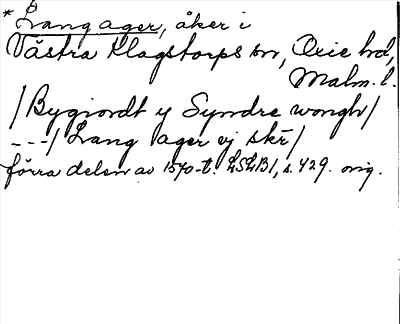 * Lang ager, åker i
Västra Klagstorps sn, Oxie hd,
Malm. l.
/Bygiordt y Syndre wongh/
---/ Lang ager ej skr/
förra delen av 1570-t. LSLB1, s. 429. orig.